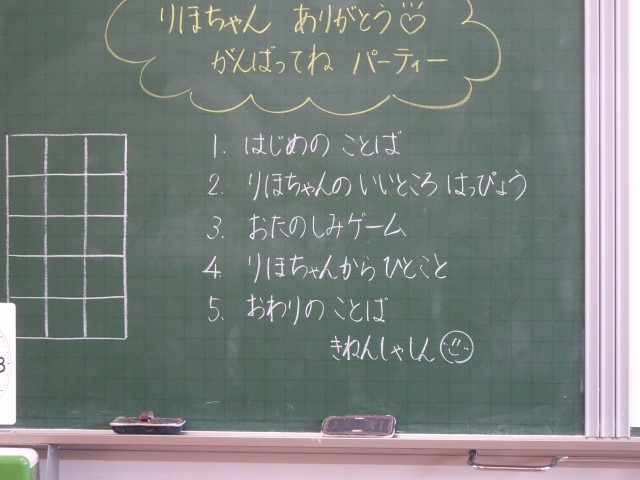 りほちゃん ありがとう♡
がんばってね パーティー
1. はじめの ことば
2. りほちゃんの いいところ はっぴょう
3. おたのしみゲーム
4. りほちゃんから ひとこと
5. おわりの ことば
きねんしゃしん
3